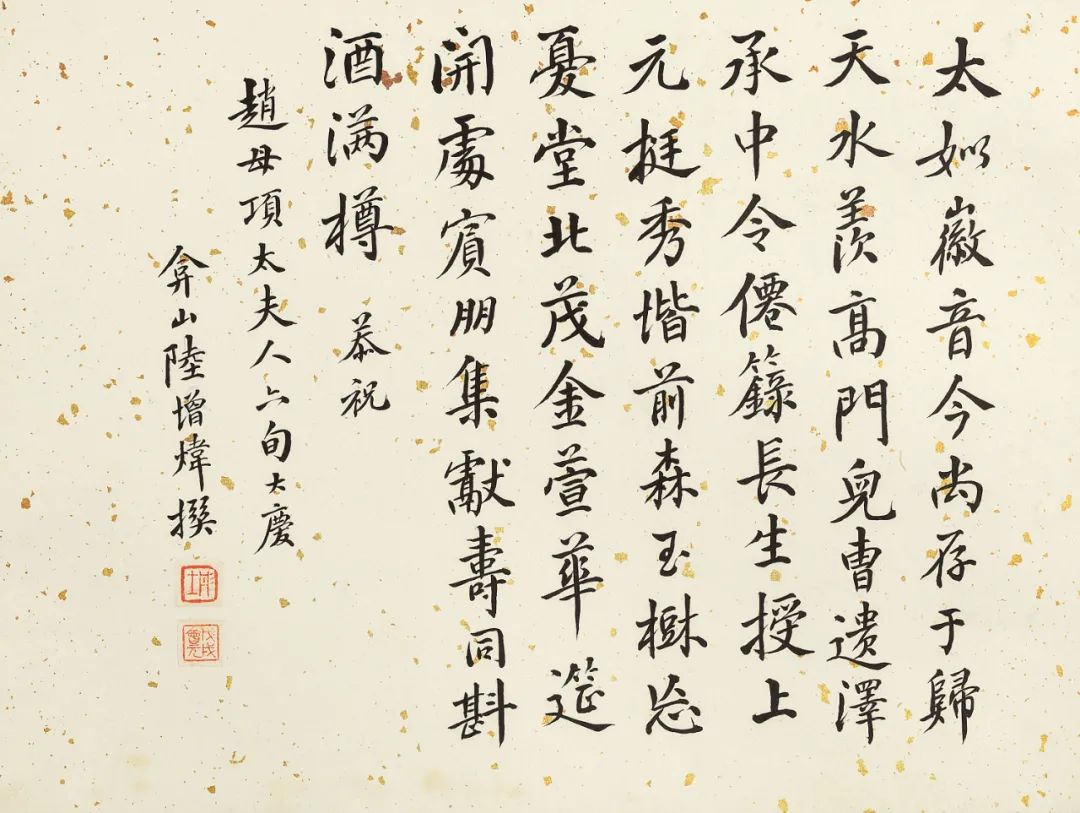 太姒徽音今尚存于歸
天水羨高門兒曹遺澤
承中令僊籙長生授上
元挺秀堦前森玉樹忘
憂堂北茂金萱華筵
開處賓朋集獻壽同斟
酒满樽 恭祝
趙母項太夫人六旬大慶
弇山陸增煒撰
彤士
戊戌會元